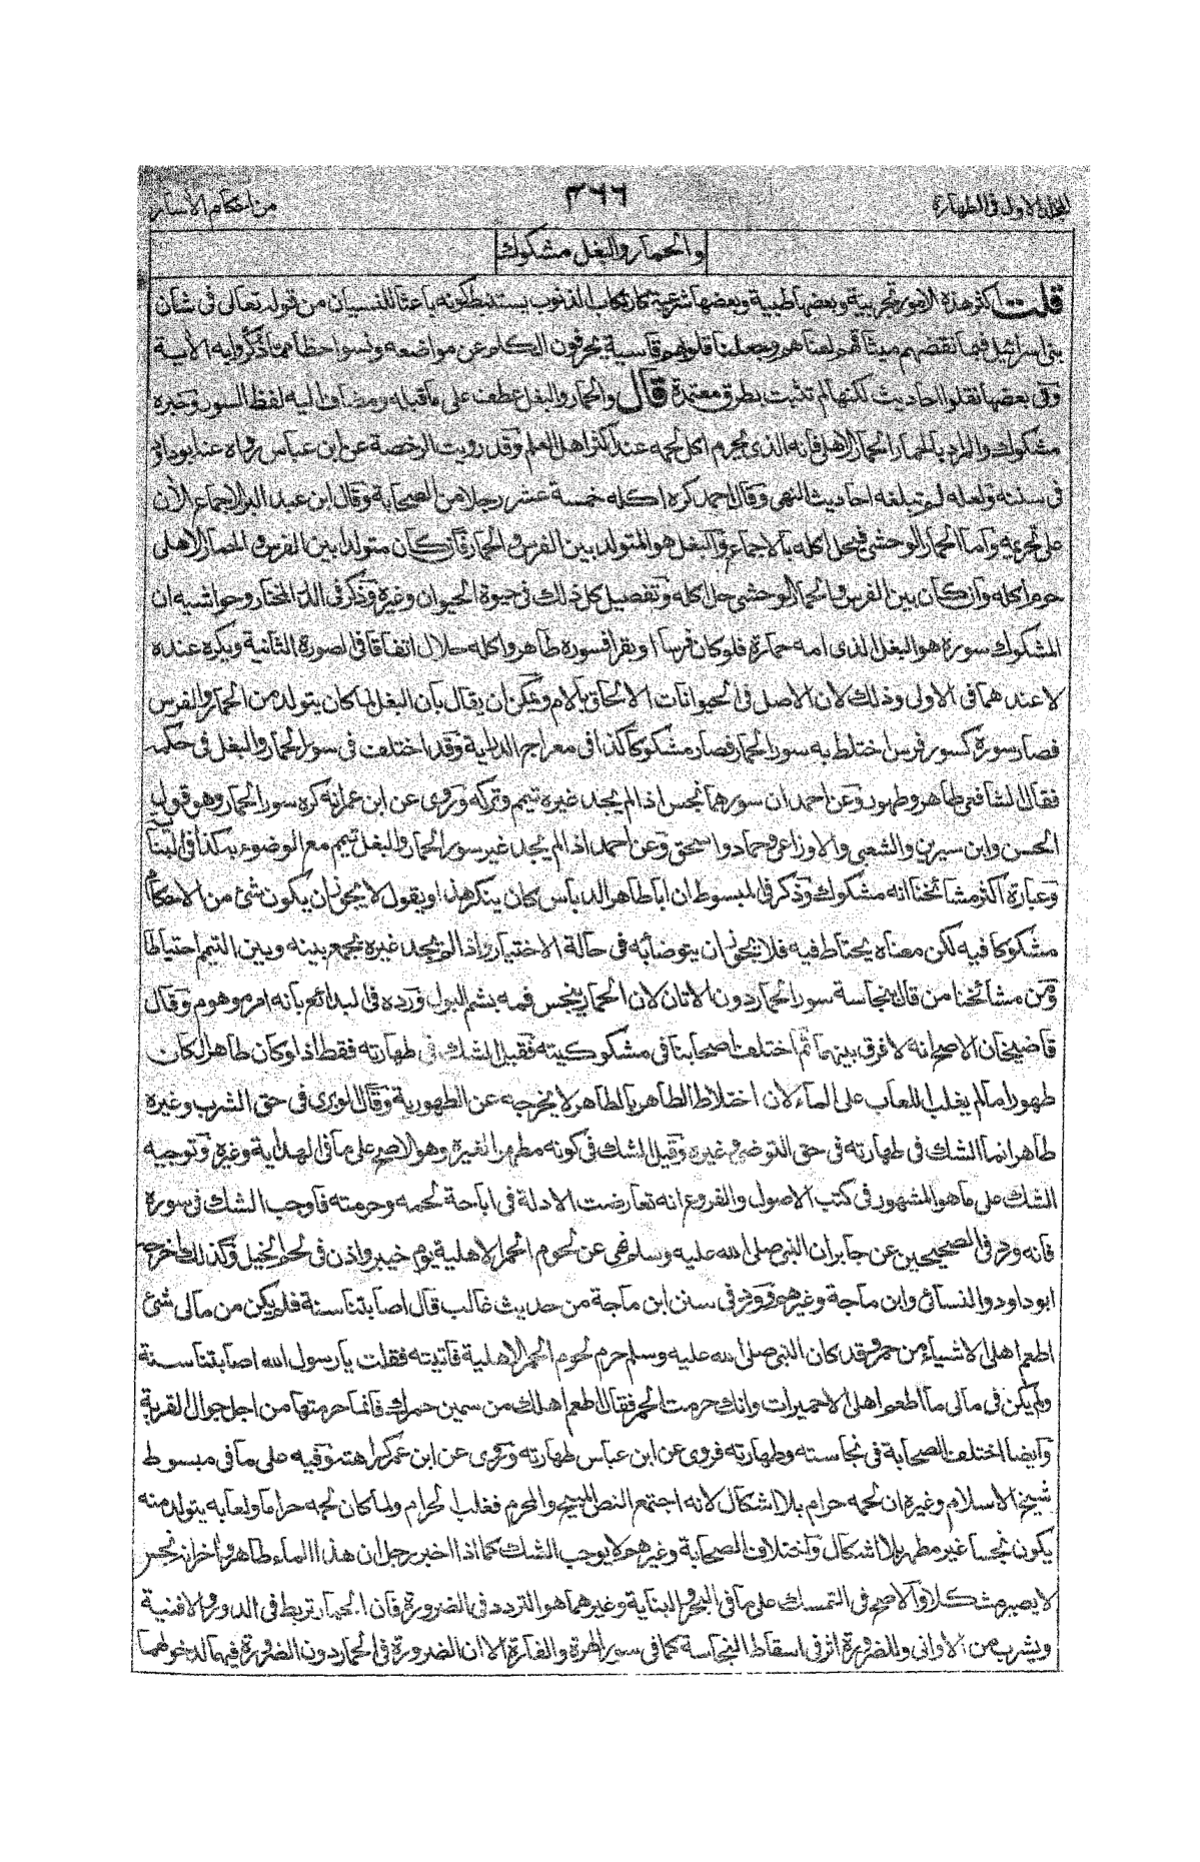 المجلد الاول فى الطهارة
٤٦٦
من احكام الأسار
والحمار والبغل مشكوك
قلت اكثر هذه الامور تجربية وبعضها طبية وبعضها شرعية كارتكاب الذنوب يستنبط كونه باعثا للنسيان من قوله تعالى فى شان
بنى اسرائيل فبما نقضهم ميثاقهم لعناهم وجعلنا قلوبهم قاسية يحرفون الكلم عن مواضعه ونسوا حظا مما ذكروا به الآية
وفى بعضها نقلوا احاديث لكنها لم تثبت بطرق معتمدة قال والحمار والبغل عطف على ماقبله ومضاف اليه لفظ السور وخبره
مشكوك والمراد بالحمار الحمار الاهلى فانه الذى يحرم اكل لحمه عند اكثر اهل العلم وقد رويت الرخصة عن ابن عباس رواه عنه ابوداؤ
فى سننه ولعله لم تبلغه احاديث النهى وقال احمد كره اكله خمسة عشر رجلا من الصحابة وقال ابن عبد البر الاجماع الآن
على تحريمه واما الحمار الوحشى فيحل اكله بالاجماع والبغل هو المتولد بين الفرس والحمار فان كان متولدا بين الفرس والحمار الاهلى
حرم اكله وان كان بين الفرس والحمار الوحشى حل اكله وتفصيل كل ذلك فى حيوة الحيوان وغيره وذكر فى الدر المختار وحواشيه ان
المشكوك سوره هو البغل الذى امه حمارة فلو كان فرسا او بقرا فسوره طاهر واكله حلال اتفاقا فى الصورة الثانية ويكره عنده
لا عندهما فى الاولى وذلك لان الاصل فى الحيوانات الالحاق بالام ويمكن ان يقال بان البغل لما كان يتولد من الحمار والفرس
فصار سوره كسور فرس اختلط به سور الحمار فصار مشكوكا كذا فى معراج الدراية وقد اختلف فى سور الحمار والبغل فى حكمه
فقال الشافعى طاهر وطهور وعن احمد ان سورهما نجس اذا لم يجد غيره تيمم وتركه وروى عن ابن عمر انه كره سور الحمار وهو قول
الحسن وابن سيرين والشعبى والاوزاعى وحماد واسحق وعن احمد اذا لم يجد غير سور الحمار والبغل تيمم مع الوضوء به كذا فى البنا
وعبارة اكثر مشائخنا انه مشكوك وذكر فى المبسوط ان اباطاهر الدباس كان ينكر هذا ويقول لا يجوز ان يكون شئ من الاحكام
مشكوكا فيه لكن معناه يحتاط فيه فلا يجوز ان يتوضأ به فى حالة الاختيار واذا لم يجد غيره يجمع بينه وبين التيمم احتياطا
ومن مشائخنا من قال بنجاسة سور الحمار دون الاتان لان الحمار ينجس فمه بشم البول ورده فى البدائع بانه امر موهوم وقال
قاضيخان الاصح انه لا فرق بينهما ثم اختلف اصحابنا فى مشكوكيته فقيل الشك فى طهارته فقط اذ لو كان طاهرا لكان
طهورا ما لم يغلب اللعاب على الماء لان اختلاط الطاهر بالطاهر لا يخرجه عن الطهورية وقال فى حق الشرب وغيره
طاهر انما الشك فى طهارته فى حق التوضى وغيره وقيل الشك فى كونه مطهرا لغيره وهو الاصح على ما فى الهداية وغيره وتوجيه
الشك على ما هو المشهور فى كتب الاصول والفروع انه تعارضت الادلة فى اباحة لحمه وحرمته فاوجب الشك فى سوره
فانه ورد فى الصحيحين عن جابر ان النبى صلى الله عليه وسلم نهى عن لحوم الحمر الاهلية يوم خيبر واذن فى لحوم الخيل وكذلك اخرجه
ابوداود والنسائى وابن ماجة وغيرهم وورد فى سنن ابن ماجة من حديث غالب قال اصابتنا سنة فلم يكن من مالى شئ
اطعم اهلى الا شياء من حمر وقد كان النبى صلى الله عليه وسلم حرم لحوم الحمر الاهلية فاتيته فقلت يا رسول الله اصابتنا سنة
ولم يكن فى مالى ما اطعم اهلى الا حميرات وانك حرمت الحمر فقال اطعم اهلك من سمين حمرك فانما حرمتها من اجل جوال القرية
وايضا اختلف الصحابة فى نجاسته وطهارته فروى عن ابن عباس طهارته وروى عن ابن عمر كراهته وفيه على ما فى مبسوط
شيخ الاسلام وغيره ان لحمه حرام بلا اشكال لانه اجتمع النص المبيح والمحرم فغلب الحرام ولما كان لحمه حراما ولعابه يتولد منه
يكون نجسا غير مطهر بلا اشكال واختلاف الصحابة وغيرهم لا يوجب الشك كما اذا اخبر رجل ان هذا الماء طاهر واخر انه نجس
لا يصير مشكلا والاصح فى التمسك على ما فى البحر والبناية وغيرهما هو التردد فى الضرورة فان الحمار تربط فى الدور والافنية
ويشرب من الاوانى وللضرورة اثر فى اسقاط النجاسة كما فى سور الهرة والفارة الا ان الضرورة فى الحمار دون الضرورة فيهما لدخولهما